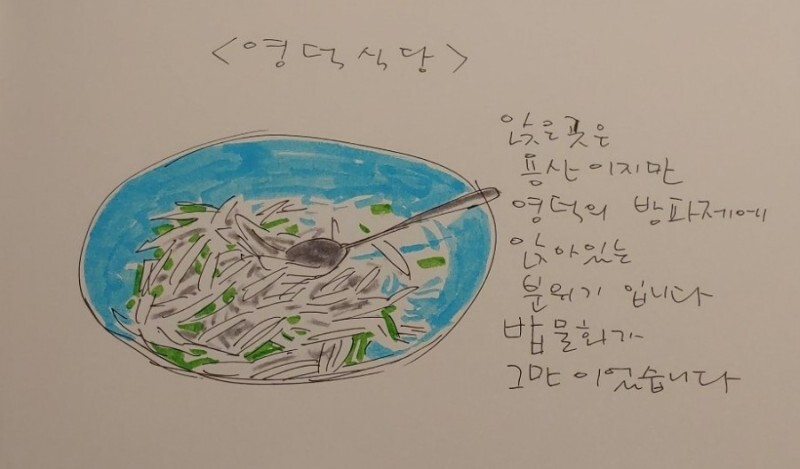 <영덕식당>
앉은곳은
용산이지만
영덕의 방파제에
앉아있는
분위기 입니다
밥물회가
그만이었습니다